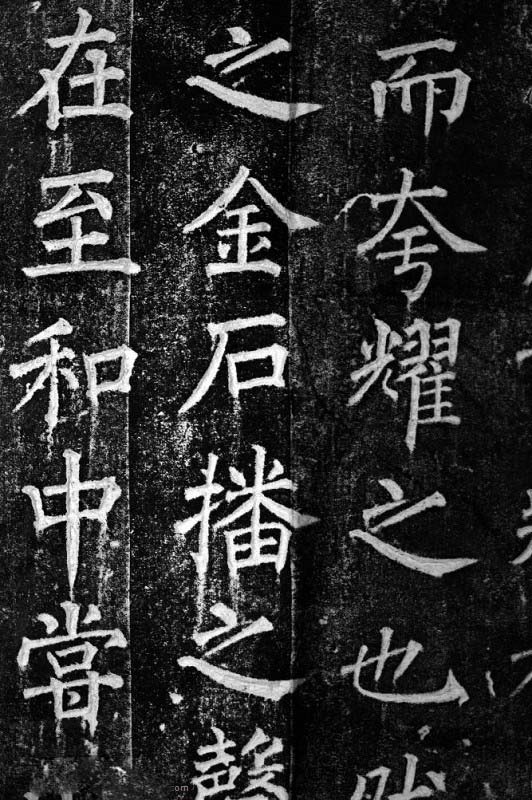 而夸耀之也然
之金石播之聲
在至和中嘗